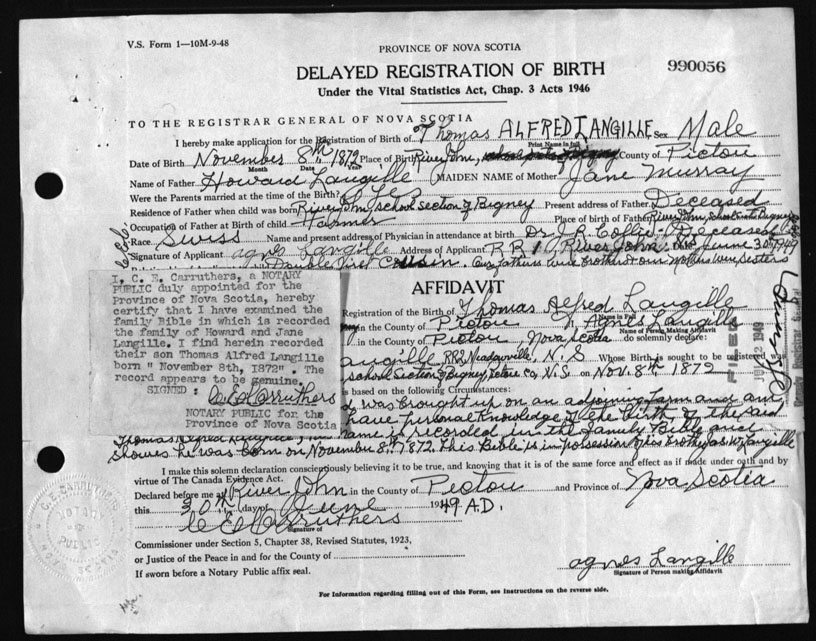 V.S. Form 1—10M-9-48
PROVINCE OF NOVA SCOTIA
DELAYED REGISTRATION OF BIRTH
990056
Under the Vital Statistics Act, Chap. 3 Acts 1946
TO THE REGISTRAR GENERAL OF NOVA SCOTIA
I hereby make application for the Registration of Birth of Thomas ALFRED LANGILLE Sex Male
Print Name in full
Date of Birth November 8th 1872 Place of Birth River John, County of Pictou
Month Date Year
Name of Father Howard Langille MAIDEN NAME of Mother Jane Murray
Were the Parents married at the time of Birth? Yes
Residence of Father when child was born River John, school Section of Bigney Present address of Father Deceased
Occupation of Father at Birth of child Farmer Place of birth of Father River John, School Section Bigney
Race Swiss Name and present address of Physician in attendance at birth Dr. J. R. Collie - Deceased
Signature of Applicant Agnes Langille Address of Applicant RR 1 River John Date June 30 1949
Double First Cousin. Our fathers were brothers & our mothers were sisters
AFFIDAVIT
I, C. E. Carruthers, a NOTARY
PUBLIC duly appointed for the
Province of Nova Scotia, hereby
certify that I have examined the
family Bible in which is recorded
the family of Howard and Jane
Langille. I find herein recorded
their son Thomas Alfred Langille
born " November 8th, 1872" . The
record appears to be genuine.
SIGNED : C E Carruthers
NOTARY PUBLIC for the
Province of Nova Scotia
Registration of the Birth of Thomas Alfred Langille
Name in Full
in the County of Pictou I, Agnes Langille
Name of Person Making Affidavit
in the County of Pictou, Nova Scotia do solemnly declare:
Langille, RR2 Meadowville, N.S Whose Birth is sought to be registered was
school Section of Bigney, Pictou Co, N.S on Nov. 8th 1872
is based on the following Circumstances:
was brought up on an adjoining farm and am
have personal knowledge of the birth of the said
Thomas Alfred Langille, name is recorded in the Family Bible and
shows he was born on November 8th 1872. This Bible is in possession of his brother Langille
FILED
JUL 2 1949
I make this solemn declaration conscientiously believing it to be true, and knowing that it is of the same force and effect as if made under oath and by
virtue of The Canada Evidence Act.
Declared before me at River John in the County of Pictou and Province of Nova Scotia
this 30th day of June 1949 A.D.
C E Carruthers
Signature of
Commissioner under Section 5, Chapter 38, Revised Statutes, 1923,
or Justice of the Peace in and for the County of
If sworn before a Notary Public affix seal.
Agnes Langille
Signature of Person making Affidavit
C. E. CARRUTHERS
NOTARY
PUBLIC
For Information regarding filling out of this Form, see Instructions on the reverse side.